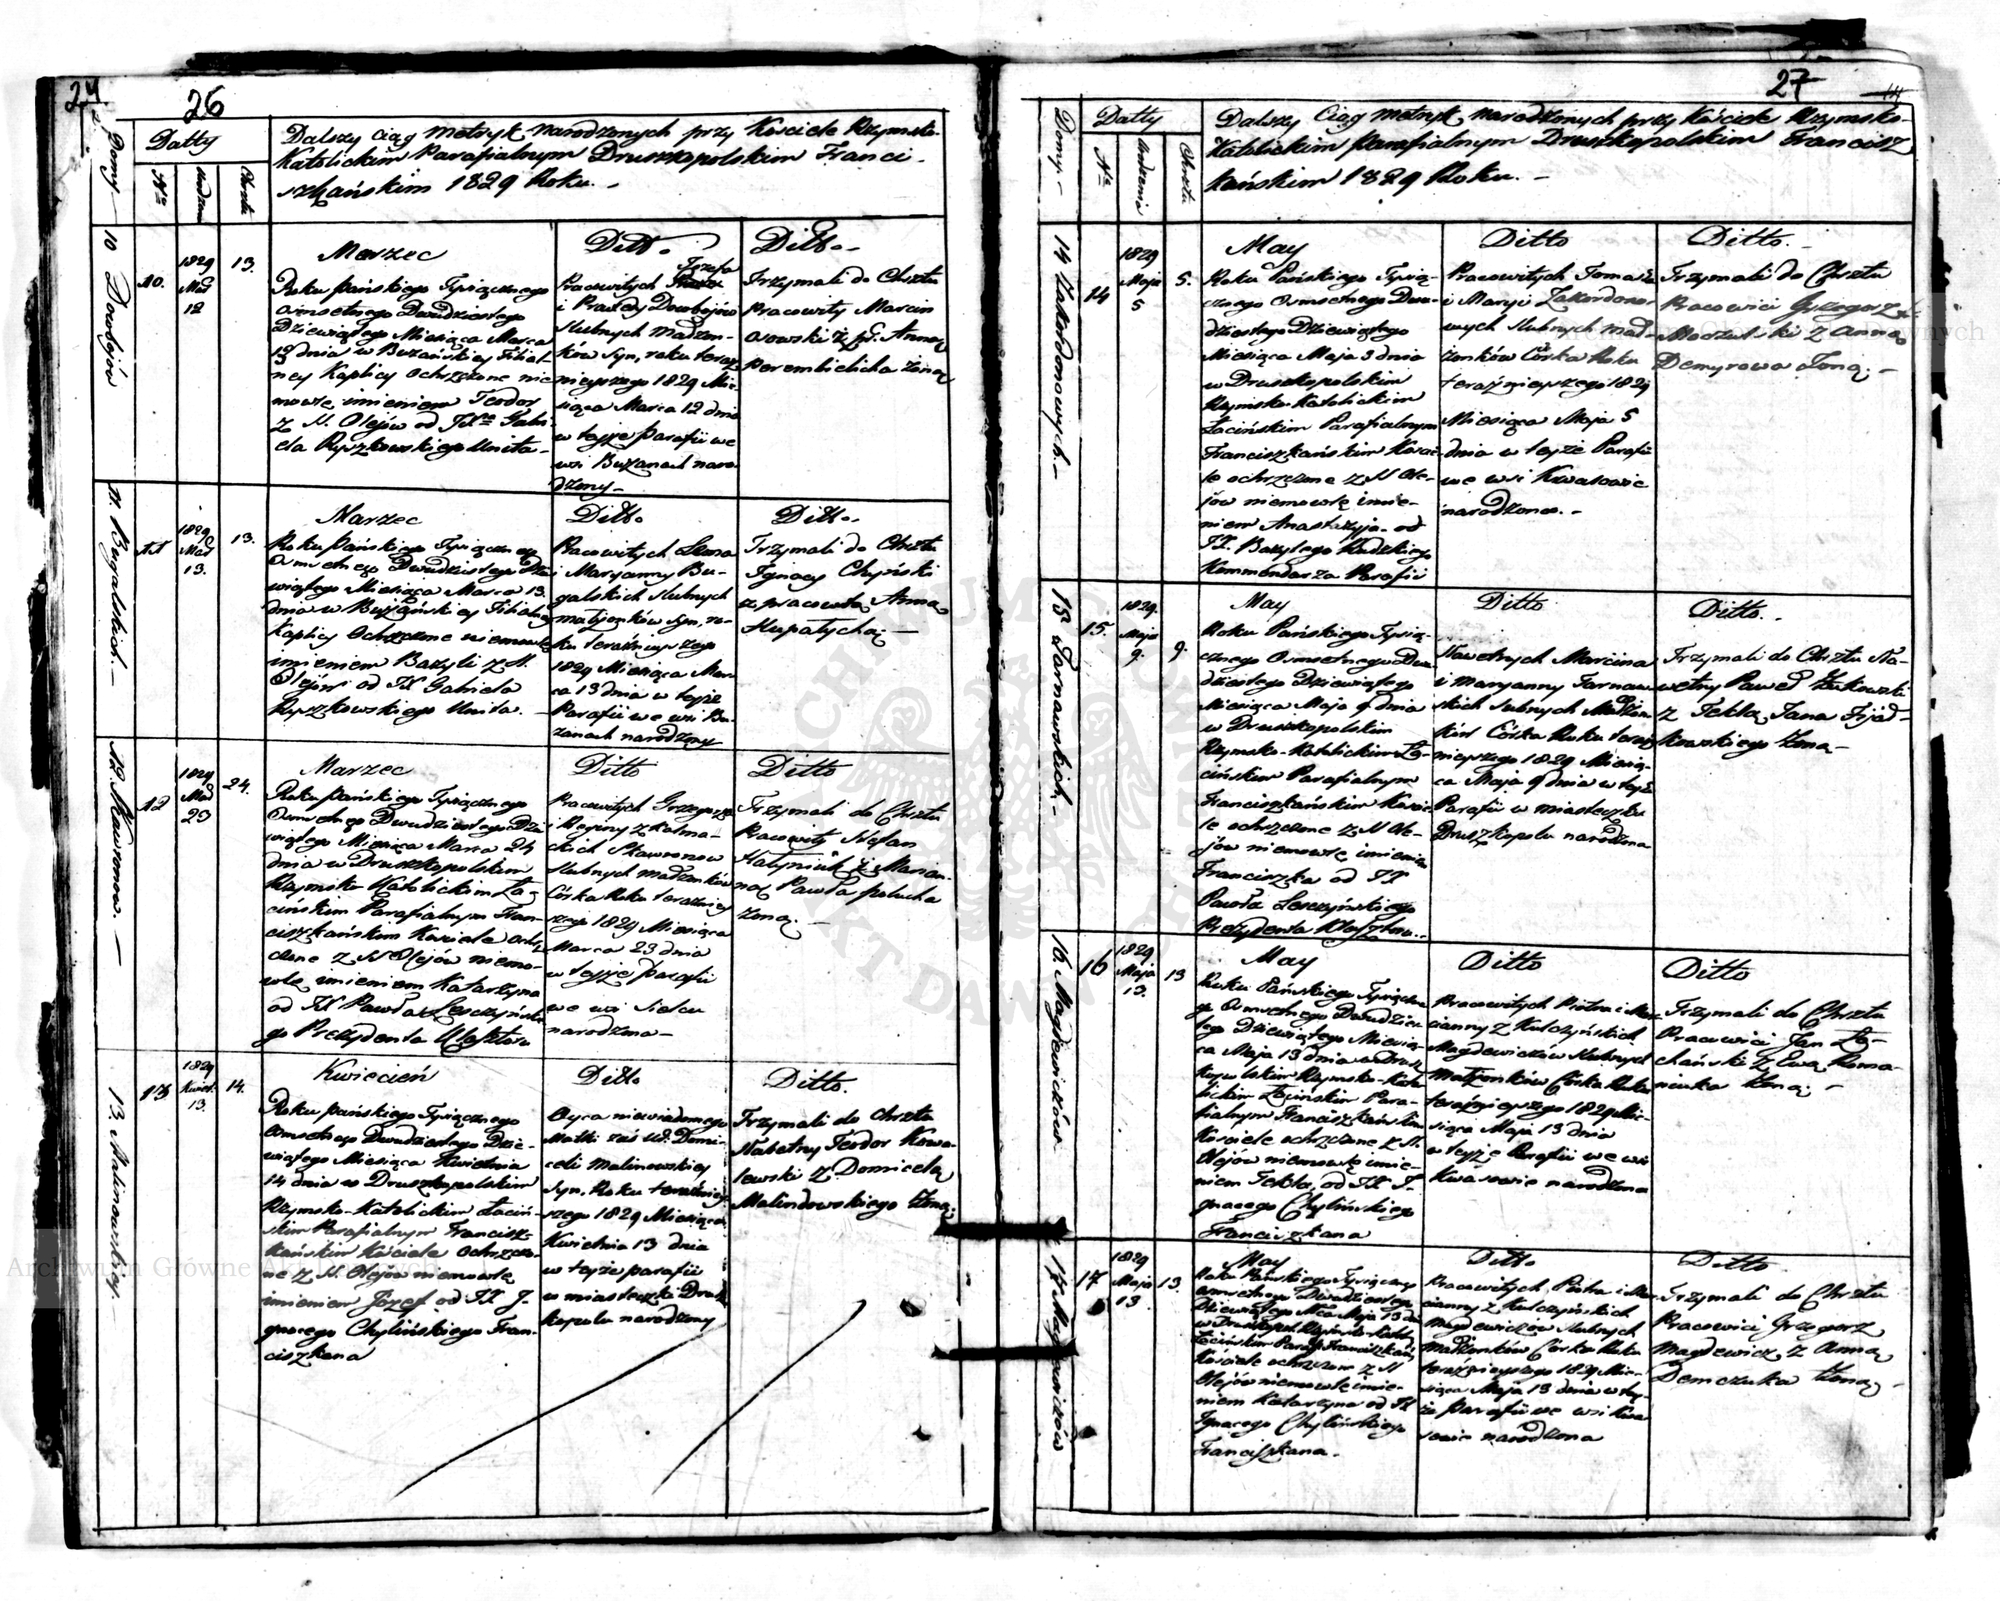 24
26
Domy
Datty
No
Urodzenia
Chrztu
Dalszy ciąg metryk narodzonych przy Kościele Rzymsko-
Katolickim Parafialnym Druszkopolskim Franci-
szkańskim 1829 Roku. -
10 Dowbojów
10.
1829
Mar
12
13.
Marzec
Roku Pańskiego Tysiącznego
Osmsetnego Dwudziestego
Dziewiątego Miesiąca Marca
13 dnia w Bużańskiey Filial-
ney Kaplicy Ochrzczone nie-
mowlę imieniem Teodor
z S. Olejów od JX Gabri-
ela Ryszkowskiego Unita-
Ditto
Józefa
Pracowitych
i Prawdy Dowbojów
slubnych Małżon-
ków Syn, roku teraz-
nieyszego 1829 Mie-
siąca Marca 12 dnia
w teyże parafii we
wsi Bużanach naro-
dzony -
Ditto. -
Trzymali do Chrztu
pracowity Marcin
Osowski z Anną
żoną
11. Bugalskich. -
11
1829
Mar
13.
13.
Marzec
Roku Pańskiego Tysiącznego
Osmsetnego Dwudziestego Dzie-
wiątego Miesiąca Marca 13.
dnia w Bużańskiey Filialney
Kaplicy Ochrzczone niemowle
imieniem Bazyli z S.
Olejów od JX Gabriela
Ryszkowskiego Unita. -
Ditto
Pracowitych
i Maryanny Bu-
galskich slubnych
małżonków Syn, ro-
ku teraznieyszego
1829 Miesiąca Mar-
ca 13 dnia w teyże
Parafii we wsi Bu-
żanach narodzony
Ditto. -
Trzymali do Chrztu
Ignacy Chyński
z pracowitą Anną
Hupatychą -
12. Skawronow. -
12
1829
Mar
23
24.
Marzec
Roku Pańskiego Tysiącznego
Osmsetnego Dwudziestego Dzie-
wiątego Miesiąca Marca 24
dnia w Druszkopolskim
Rzymsko Katolickim Ła-
cińskim Parafialnym Fran-
ciszkańskim Kościele Ochrz-
czone z S. Olejów niemo-
wle imieniem Katarzyna
od JX Pawła Leszczyńskie-
go Prezydenta Klasztoru
Ditto
Pracowitych Grzegorza
i Reginy z Kalma-
ckich Skawronow
slubnych małżonków
Córka Roku teraźniey-
szego 1829 Miesiąca
Marca 23 dnia
w teyże parafii
we wsi Sielcu
narodzona -
Ditto
Trzymali do Chrztu
Pracowity Stefan
Hatyniuk z Marian-
ną Pawła Polucha
żoną. -
13. Malinowskiey -
13
1829
Kwiet.
13.
14.
Kwiecień
Roku Pańskiego Tysiącznego
Osmsetnego Dwudziestego Dzie-
wiątego Miesiąca Kwietnia
14 dnia w Druszkopolskim
Rzymsko-Katolickim Łaciń-
skim Parafialnym Francisz-
kańskim Kościele Ochrzczo-
ne z S. Olejów niemowle
imieniem Józef od JX I-
gnacego Chylińskiego Fran-
ciszkana
Ditto
Oyca niewiadomego
Matki zaś Ur. Domi-
celi Malinowskiey
Syn, Roku teraźniey-
szego 1829 Miesiąca
Kwietnia 13 dnia
w teyże parafii
w miasteczku Drusz-
kopolu narodzony
Ditto.
Trzymali do chrztu
Szlachetny Teodor Kowa-
lewski z Domicelą
Malindowskiego żoną.
27
Domy. -
Datty
No
Urodzenia
Chrztu
Dalszy Ciąg metryk narodzonych przy Kościele Rzymsko-
Katolickim parafialnym Druszkopolskim Francisz-
kańskim 1829 Roku. -
14 Zakordonowych. -
14
1829
Maja
5
5.
May
Roku Pańskiego Tysią-
cznego Osmsetnego Dwu-
dziestego Dziewiątego
Miesiąca Maja 5 dnia
w Druszkopolskim
Rzymsko-Katolickim
Łacińskim Parafialnym
Franciszkańskim Kości-
le ochrzczone z S. Ole-
jów niemowlę imie-
niem Anastazyja od
JX. Bazylego Rudzkiego
Kommendarza Parafii
Ditto
Pracowitych Tomasza
i Maryi Zakordono-
wych slubnych mał-
żonków Córka Roku
teraźnieyszego 1829
Miesiąca Maja 5
dnia w teyże Parafii
we wsi Kwasowie
narodzona. -
Ditto. -
Trzymali do Chrztu
Pracowici Grzegorz
Mazulski z Anną
Demyrowa żoną. -
15 Tarnawskich. -
15.
1829.
Maja
9.
9.
May
Roku Pańskiego Tysią-
cznego Osmsetnego Dwu-
dziestego Dziewiątego
Miesiąca Maja 9 dnia
w Druszkopolskim
Rzymsko-Katolickim Ła-
cińskim Parafialnym
Franciszkańskim Kości-
le ochrzczone z S. Ole-
jów niemowlę imieniem
Franciszka od JX
Pawła Leszczyńskiego
Prezydenta Klasztoru. -
Ditto
Sławetnych Marcina
i Maryanny Tarnaw-
skich slubnych Małżon-
ków Córka Roku teraz-
nieyszego 1829 Miesią-
ca Maja 9 dnia w teyże
Parafii w miasteczku
Druszkopolu narodzona
Ditto. -
Trzymali do Chrztu Sła-
wetny Paweł Żukowski
z Teklą Jana Fijał-
kowskiego żoną -
16 Magdewiczów
16
1829
Maja
13.
13
May
Roku Pańskiego Tysiączne-
go Osmsetnego Dwudzies-
tego Dziewiątego Miesią-
ca Maja 13 dnia w Drusz-
kopolskim Rzymsko-Kato-
lickim Łacińskim Para-
fialnym Franciszkańskim
Kościele ochrzczone z S.
Olejów niemowlę imie-
niem Tekla, od JX I-
gnacego Chylińskiego
Franciszkana
Ditto
Pracowitych Piotra i Mar-
cianny z Kulczyńskich
Magdewiczów slubnych
małżonków Córka Roku
teraźnieyszego 1829 Mie-
siąca Maja 13 dnia
w teyże Parafii we wsi
Kwasowie narodzona
Ditto
Trzymali do Chrztu
Pracowici Jan Ła-
chański z Ewą Roma-
niuka żoną. -
17. Magdewiczów
17
1829
Maja
13.
13.
May
Roku Pańskiego Tysiącznego
Osmsetnego Dwudziestego
Dziewiątego Mca Maja 13 dnia
w Druszkopol. Rzymsko-Katol.
Łacińskim Paraf. Franciszkań.
Kościele ochrzczone z S
Olejów niemowlę imie-
niem Katarzyna od JX
Ignacego Chylińskiego
Franciszkana. -
Ditto
Pracowitych Piotra i Mar-
cianny z Kulczyńskich
Magdewiczów slubnych
Małżonków Córka Roku
teraźnieyszego 1829 Mie-
siąca Maja 13 dnia w tey-
że parafii we wsi Kwa-
sowie narodzona
Ditto
Trzymali do Chrztu
Pracowici Grzegorz
Magdewicz z Anną
Demczuka żoną -
Archiwum Główne Akt Dawnych
ARCHIWUM GŁÓWNE AKT DAWNYCH